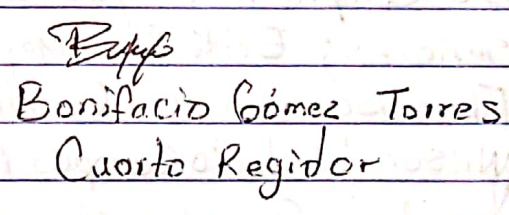 Bonifacio Gómez Torres
Cuarto Regidor